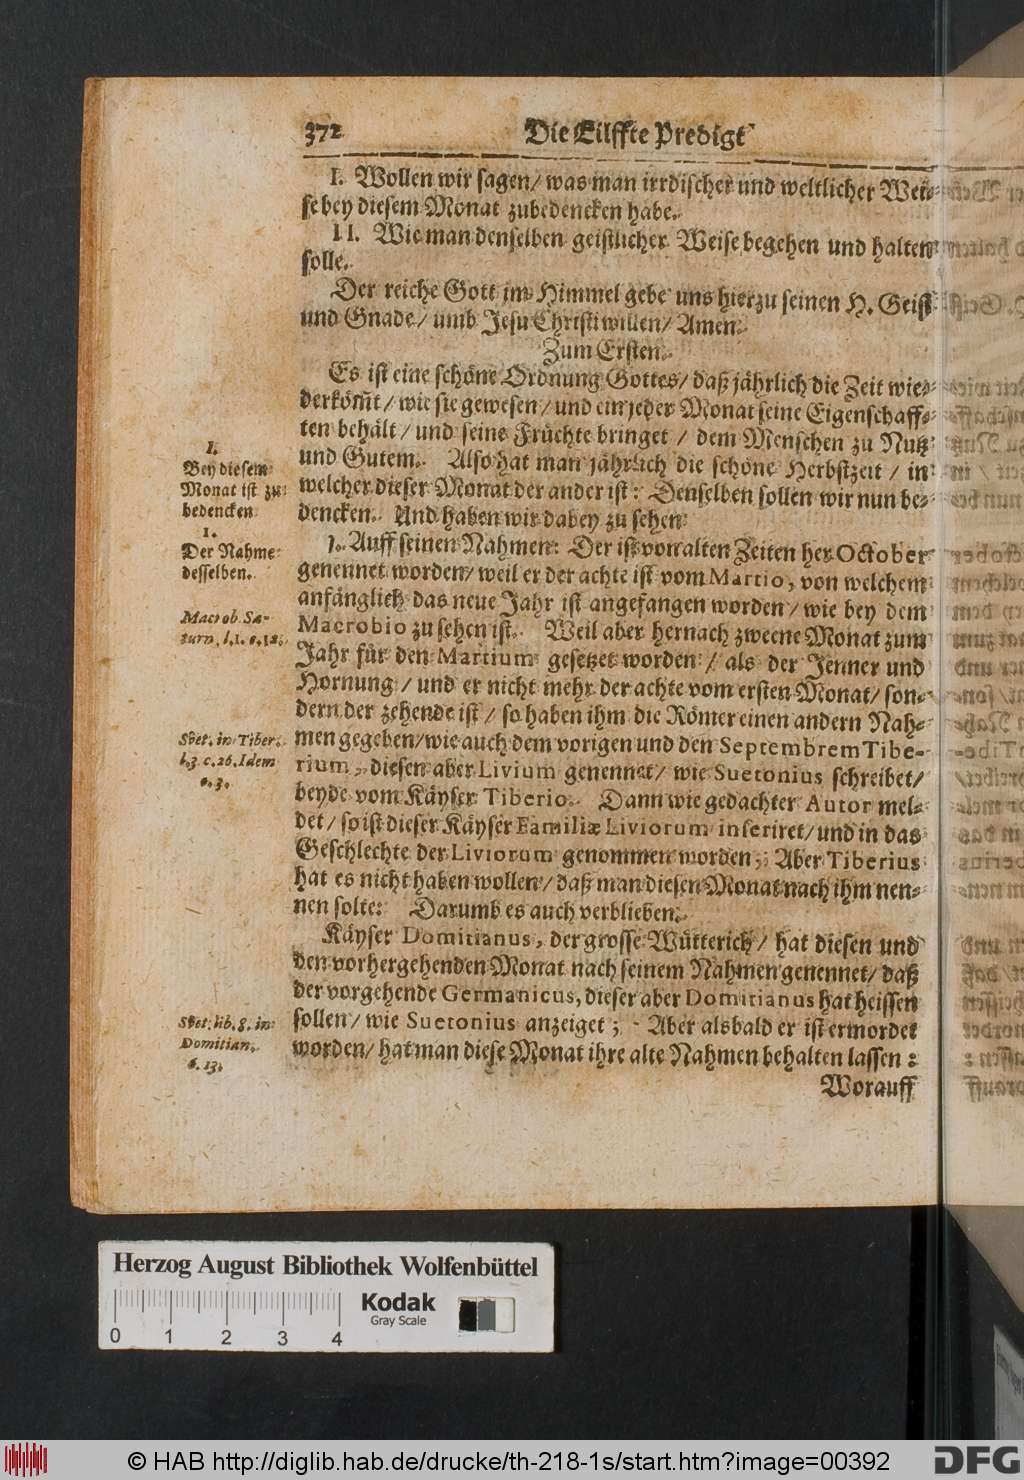 372 Die Eilffte Predigt
I. Wollen wir sagen/ was man irrdischer und weltlicher Wei-
se bey diesem Monat zubedencken habe.
II. Wie man denselben geistlicher Weise begehen und halten
solle.
Der reiche Gott im Himmel gebe uns hierzu seinen H. Geist
und Gnade/ umb Jesu Christi willen/ Amen.
Zum Ersten.
Es ist eine schöne Ordnung Gottes/ daß jährlich die Zeit wie-
derköm̃t/ wie sie gewesen/ und ein jeder Monat seine Eigenschaff-
ten behält/ und seine Früchte bringet / dem Menschen zu Nutz
und Gutem. Also hat man jährlich die schöne Herbstzeit / in
welcher dieser Monat der ander ist: Denselben sollen wir nun be-
dencken. Und haben wir dabey zu sehen
1. Auff seinen Nahmen: Der ist von alten Zeiten her October
genennet worden/ weil er der achte ist vom Martio, von welchem
anfänglich das neue Jahr ist angefangen worden/ wie bey dem
Macrobio zu sehen ist. Weil aber hernach zweene Monat zum
Jahr für den Martium gesetzet worden / als der Jenner und
Hornung / und er nicht mehr der achte vom ersten Monat/ son-
dern der zehende ist / so haben ihm die Römer einen andern Nah-
men gegeben/ wie auch dem vorigen und den Septembrem Tibe-
rium, diesen aber Livium genennet/ wie Suetonius schreibet/
beyde vom Käyser Tiberio. Dann wie gedachter Autor mel-
det/ so ist dieser Käyser Familiæ Liviorum inseriret/ und in das
Geschlechte der Liviorum genommen worden; Aber Tiberius
hat es nicht haben wollen/ daß man diesen Monat nach ihm nen-
nen solte: Darumb es auch verblieben.
Käyser Domitianus, der grosse Wütterich/ hat diesen und
den vorhergehenden Monat nach seinem Nahmen genennet/ daß
der vorgehende Germanicus, dieser aber Domitianus hat heissen
sollen/ wie Suetonius anzeiget; Aber alsbald er ist ermordet
worden/ hat man diese Monat ihre alte Nahmen behalten lassen:
Worauff
I.
Bey diesem
Monat ist zu
bedencken
1.
Der Nahme
desselben.
Macrob. Sa-
turn. l. 1. c. 12.
Svet. in Tiber.
l. 3. c. 26. Idem
c. 3.
Svet. lib. 8. in
Domitian.
c. 13.
Herzog August Bibliothek Wolfenbüttel
Kodak
Gray Scale
0 1 2 3 4
© HAB http://diglib.hab.de/drucke/th-218-1s/start.htm?image=00392
DFG